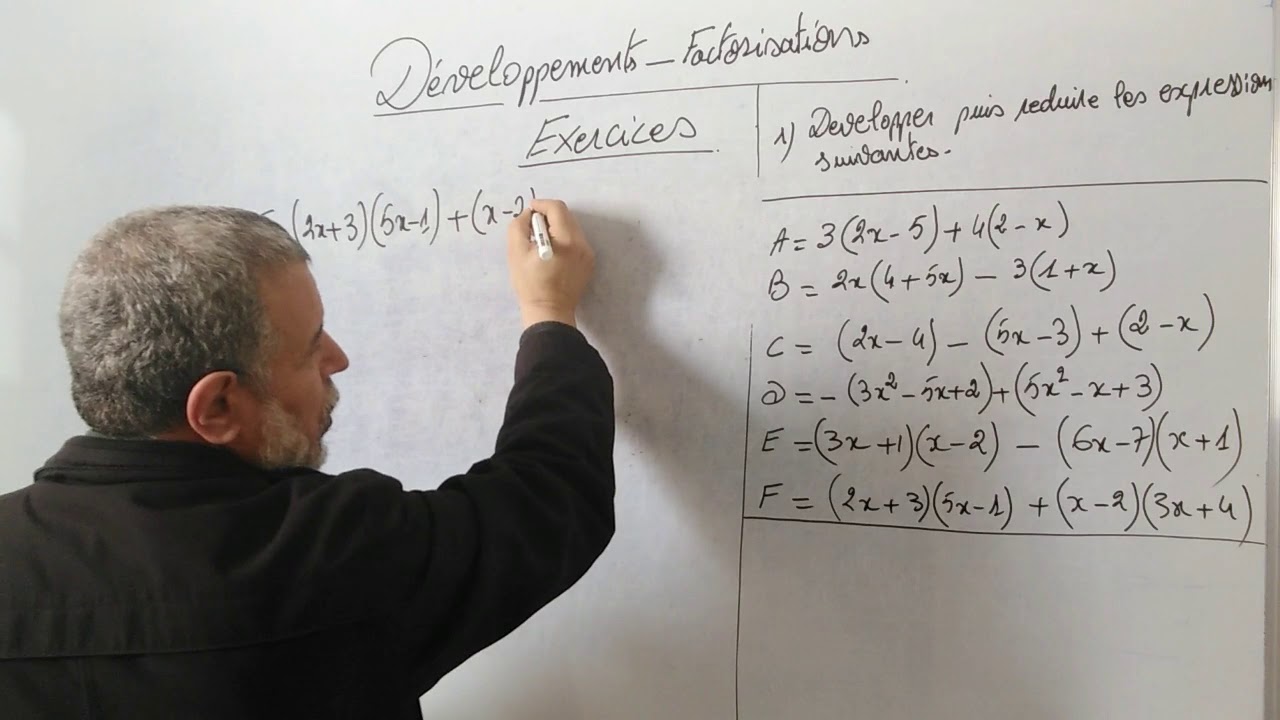 Développements - Factorisations
Exercices
(2x+3)(5x-1)+(x-2)
1) Developper puis reduire les expression
suivantes.
A = 3(2x-5)+4(2-x)
B = 2x(4+5x) - 3(1+x)
C = (2x-4) - (5x-3) + (2-x)
D = - (3x²-5x+2)+(5x²-x+3)
E = (3x+1)(x-2) - (6x-7)(x+1)
F = (2x+3)(5x-1) + (x-2)(3x+4)